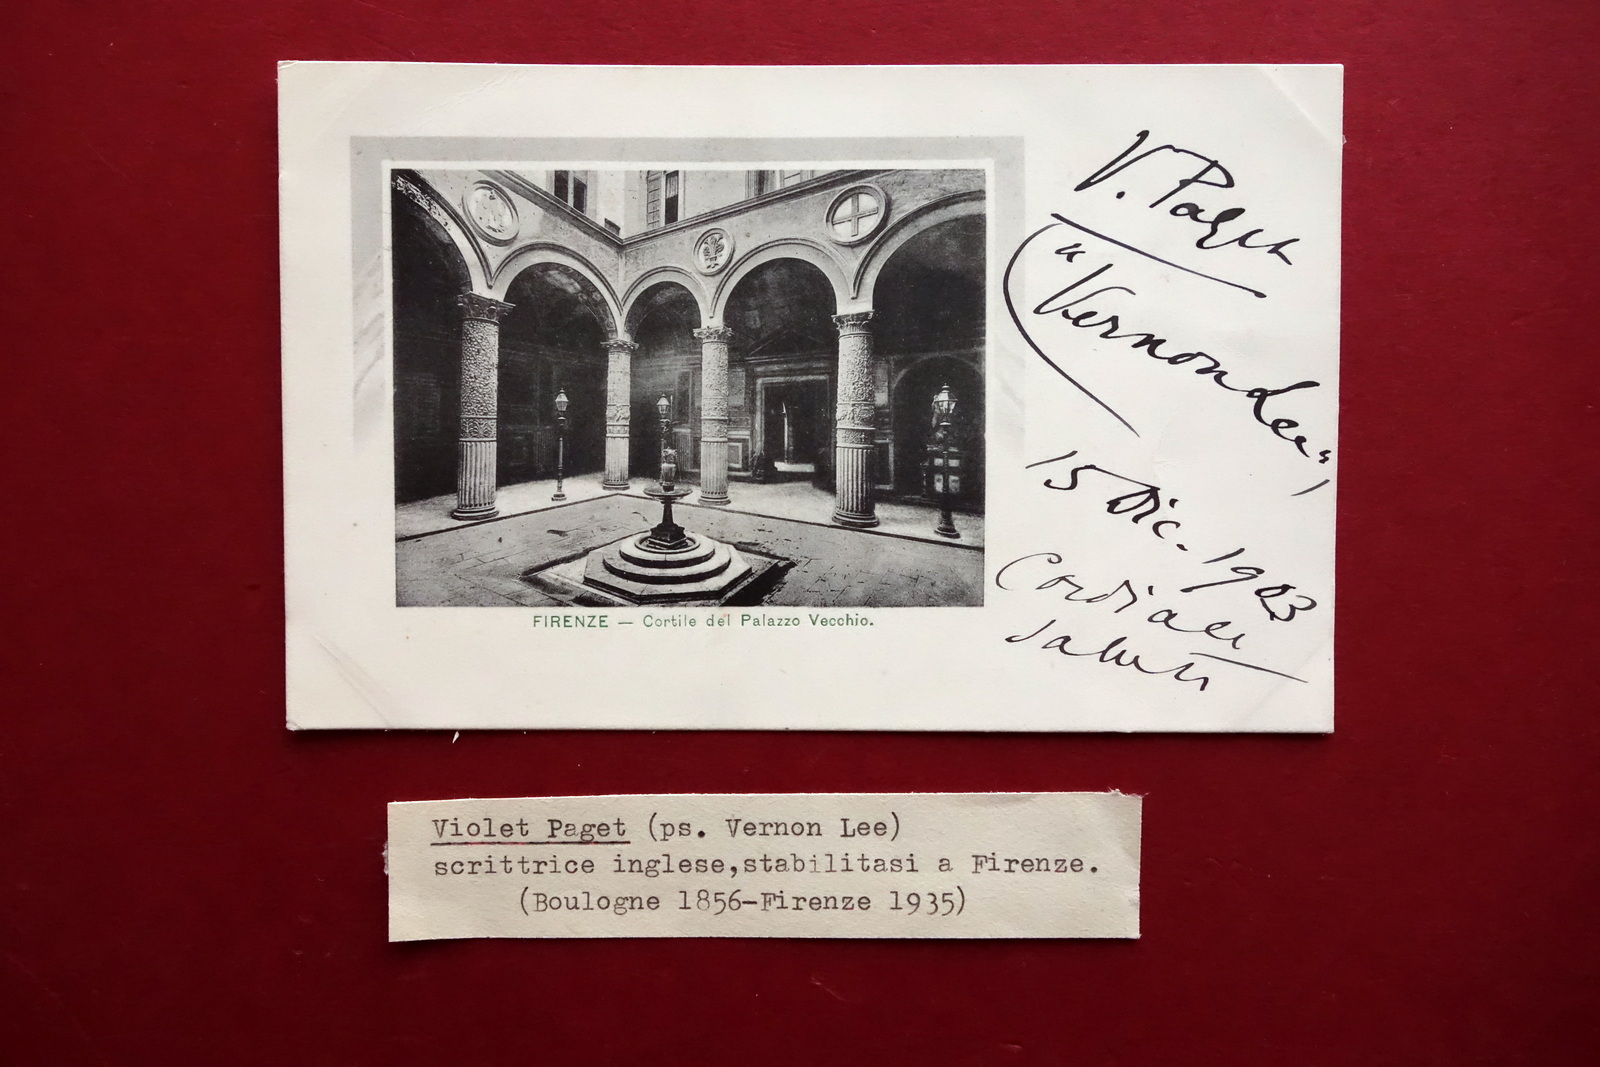 FIRENZE — Cortile del Palazzo Vecchio.
V. Paget
("Vernon Lee")
15 Dic. 1903
Cordiali
saluti
Violet Paget (ps. Vernon Lee)
scrittrice inglese,stabilitasi a Firenze.
(Boulogne 1856-Firenze 1935)